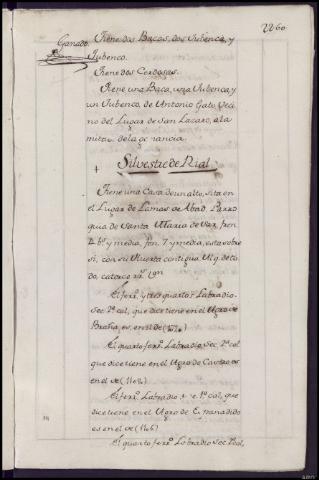 2260
Tiene dos Bacas, dos Jubencas, y
Ganado.
Jubenco.
Tiene dos Cerdosas.
Tiene una Baca, una Jubenca, y
un Jubenco, de Antonio Gato, Veci
no del Lugar de San Lazaro, a la
mitad de la ganancia.
Silvestre de Rial
Tiene una Casa de un alto, sita en
el Lugar de Lamas de Abad, Parro
quia de Santa Maria de Sar, fren.
4 bs. y media, fon. 7 y media, esta sobre
si, con su Huerta contigua
do, catorce rs.
y tres quartos Labradio
Sec. 2ª cal. que dice tiene en el Agro de
Braña, es, en el de
El quarto ferr. Labradio Sec. 2ª cal.
que dice tiene en el Agro de es
en el de (1102)
ferr. Labradio 1ª cal. que
dice tiene en el Agro de
es en el de
El quarto ferr. Labradio Sec. 2ª cal.